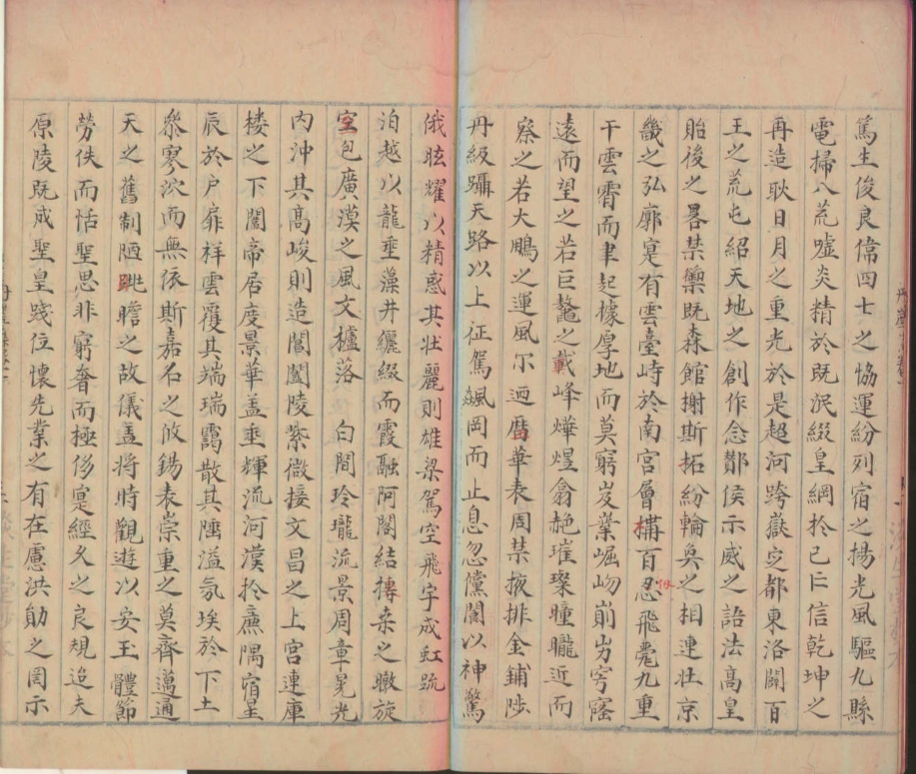 篤生俊良偉四七之恊運紛列宿之揚光風驅九縣
電掃八荒噓炎精於既泯綴皇綱扵已亡信乾坤之
再造耿日月之重光於是超河跨嶽定都東洛闢百
王之荒屯紹天地之創作念酇侯示威之語法高皇
貽後之畧禁籞既森館榭斯拓紛輪奐之相連壮京
畿之弘廓寔有雲臺峙於南宫層構百忍飛甍九重
干雲霄而聿起據厚地而莫窮岌嶪崛岉崱屴穹窿
遠而望之若巨鼇之戴峰燁煜翕赩璀璨曈曨近而
察之若大鵬之運風尔迺曆華表周禁掖排金鋪陟
丹級躡天路以上征駕飆岡而止息忽儻閬以神驚
俄眩耀以精惑其状麗則雄梁駕空飛宇成虹䟽
泊越以龍垂藻井纚綴而霞融阿閣結摶桒之暾旋
室包廣漠之風文櫨落白間玲瓏流景周章晃光
内冲其高峻則造閶闔陵紫微接文昌之上宫連庫
楼之下闈帝居度景華盖垂輝流河漢扵廉隅宿星
辰於户扉祥雲覆其端瑞靄散其陲溢氛埃於下土
叅寥泬而無依斯嘉名之攸錫表崇重之莫齊邁通
天之舊制陋眺瞻之故儀盖将時觀遊以安玉體節
勞佚而恬聖思非窮奢而極侈寔經久之良規迨夫
原陵既成聖皇踐位懷先業之有在慮洪勛之罔示